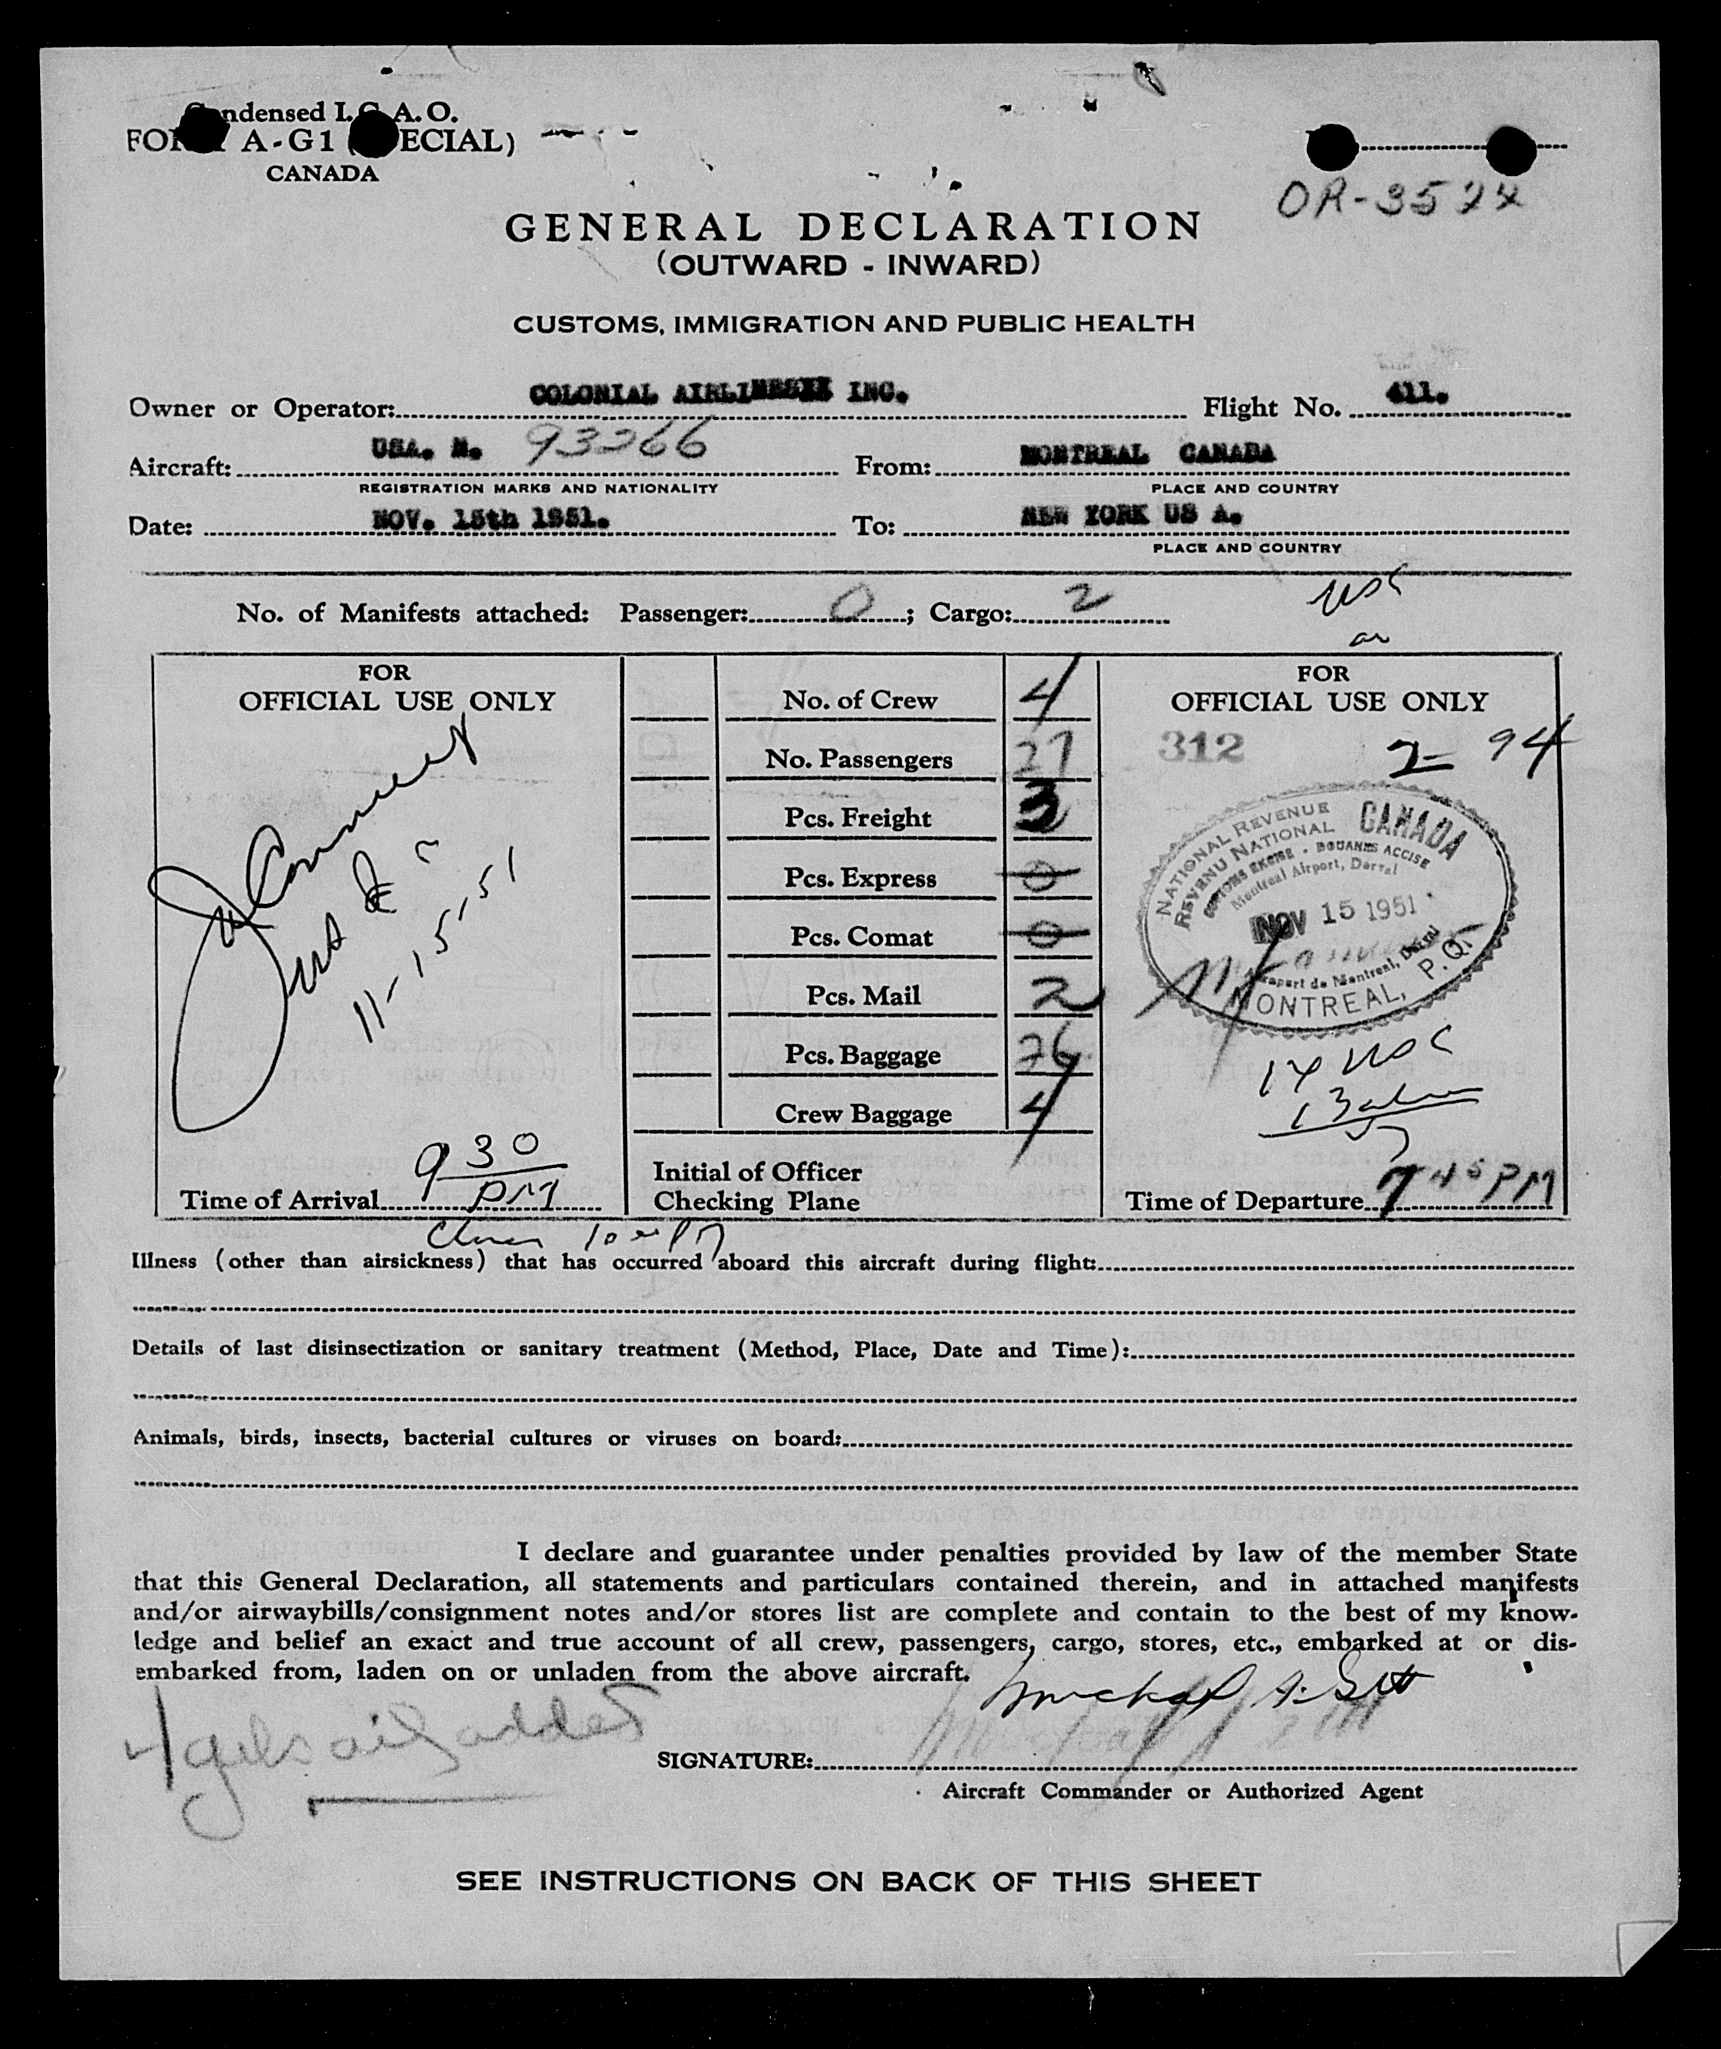 Condensed I.C.A.O.
FORM A-G1 (SPECIAL)
CANADA
OR-3524
GENERAL DECLARATION
(OUTWARD - INWARD)
CUSTOMS, IMMIGRATION AND PUBLIC HEALTH
Owner or Operator: COLONIAL AIRLINES INC. Flight No. 411.
Aircraft: USA. N. 93266 From: MONTREAL CANADA
REGISTRATION MARKS AND NATIONALITY PLACE AND COUNTRY
Date: NOV. 15th 1951. To: NEW YORK US A.
PLACE AND COUNTRY
No. of Manifests attached: Passenger: 0; Cargo: 2
FOR
OFFICIAL USE ONLY
11-15-51
Time of Arrival 9 30 PM
No. of Crew 4
No. Passengers 27
Pcs. Freight 3
Pcs. Express 0
Pcs. Comat 0
Pcs. Mail 2
Pcs. Baggage 26
Crew Baggage 4
Initial of Officer
Checking Plane
FOR
OFFICIAL USE ONLY
312 2 94
NATIONAL REVENUE CANADA
REVENU NATIONAL
CUSTOMS EXCISE - DOUANES ACCISE
Montreal Airport, Dorval
NOV 15 1951
Aeroport de Montreal, Dorval
MONTREAL, P.Q.
Time of Departure 7 45 PM
Illness (other than airsickness) that has occurred aboard this aircraft during flight:
Details of last disinsectization or sanitary treatment (Method, Place, Date and Time):
Animals, birds, insects, bacterial cultures or viruses on board:
I declare and guarantee under penalties provided by law of the member State
that this General Declaration, all statements and particulars contained therein, and in attached manifests
and/or airwaybills/consignment notes and/or stores list are complete and contain to the best of my know-
ledge and belief an exact and true account of all crew, passengers, cargo, stores, etc., embarked at or dis-
embarked from, laden on or unladen from the above aircraft.
4 gals oil added
SIGNATURE:
Aircraft Commander or Authorized Agent
SEE INSTRUCTIONS ON BACK OF THIS SHEET